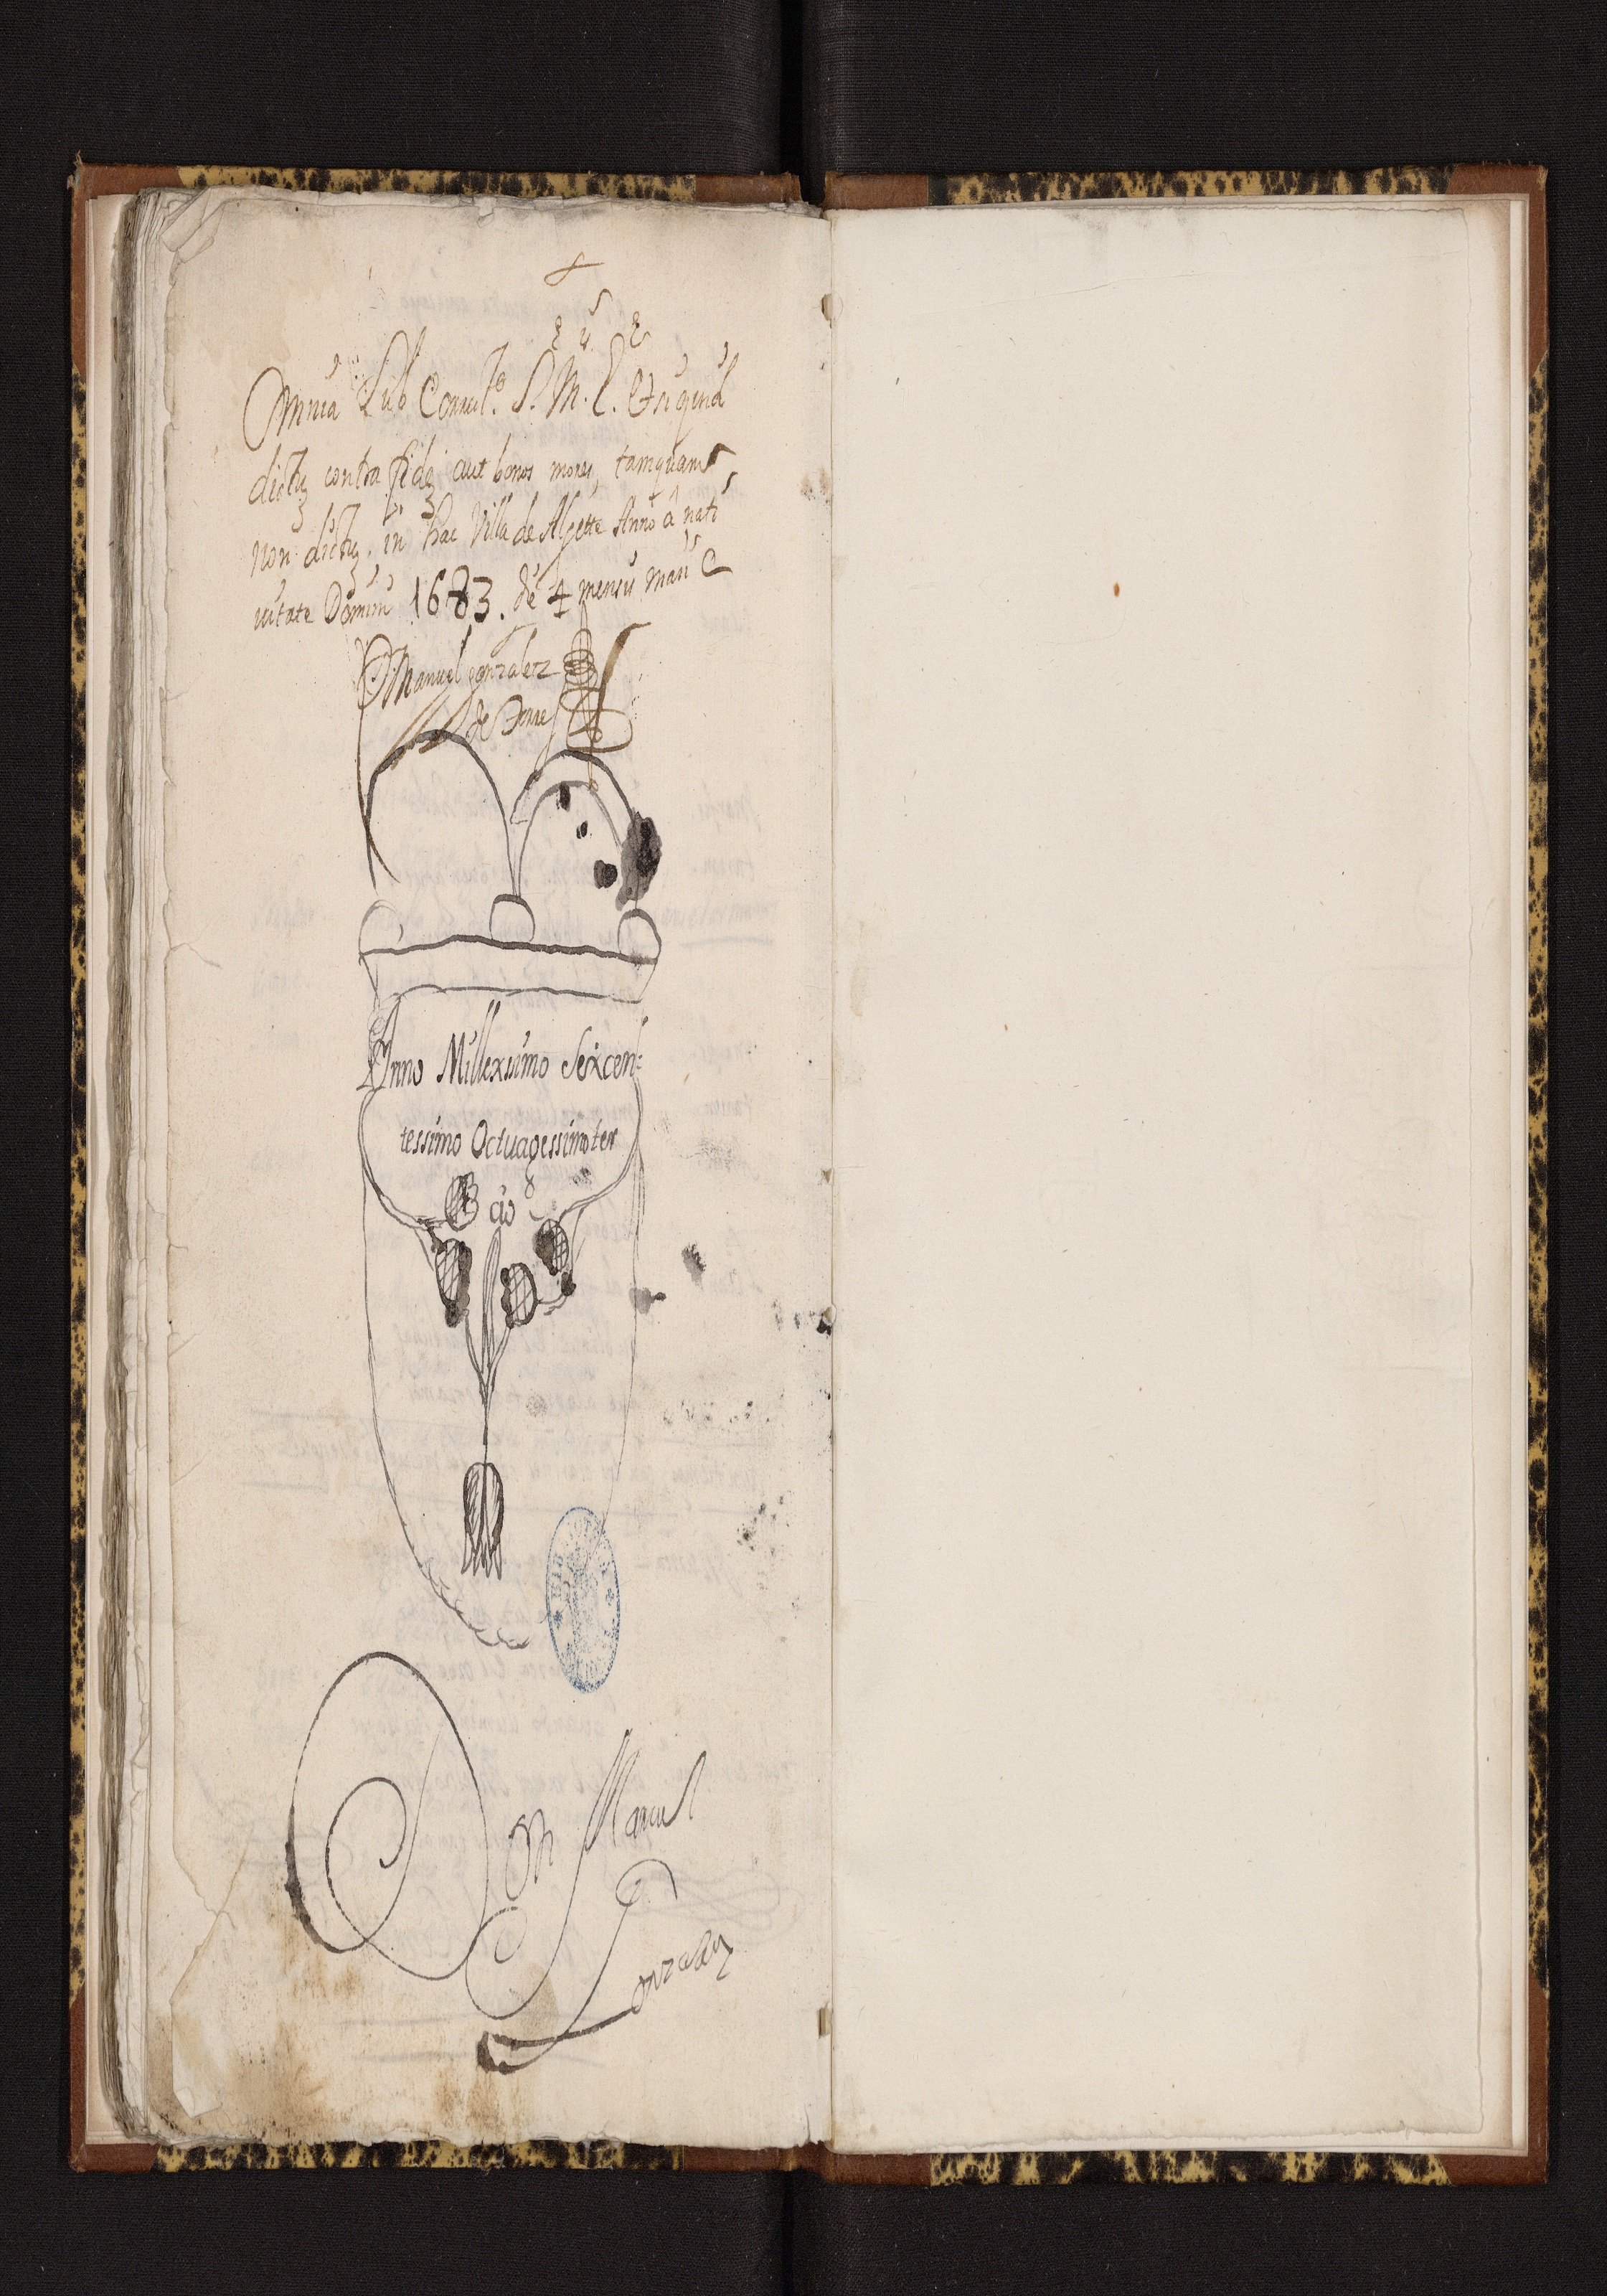 Omnia Sub Correct.e S. M. E. Et si quid
dictũ contra fidẽ aut bonos mores, tamquam
non dictũ. in hac Villa de Algette Anno â nati
vitate Domini 1683. de 4 mensis maii
D. Manuel gonzalez
de Torres
Anno Millexsimo Seixcen-
tessimo Octuagessimoter
cio
Don Manuel
Gonzalez